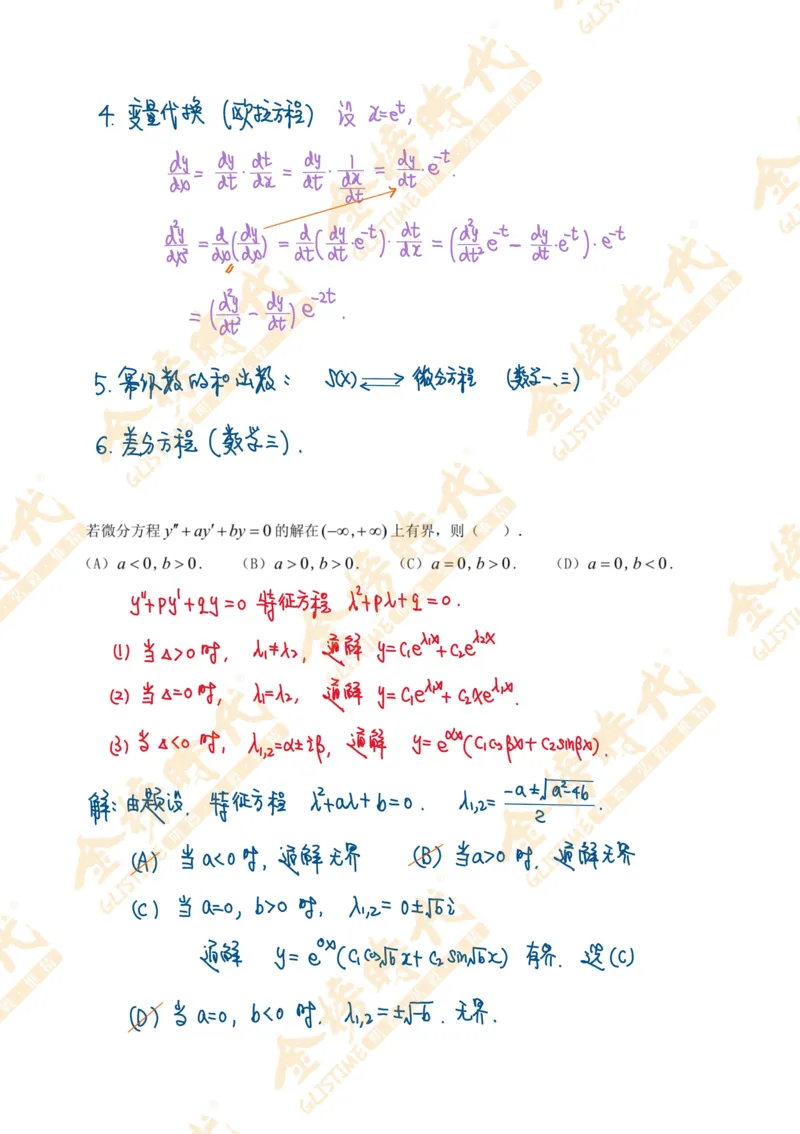 4. 变量代换 (欧拉方程) 设 x=e^t,
dy/dx = dy/dt · dt/dx = dy/dt · 1/(dx/dt) = dy/dt · e^-t.
d²y/dx² = d/dx(dy/dx) = d/dt(dy/dt · e^-t) · dt/dx = (d²y/dt² e^-t − dy/dt · e^-t) · e^-t
= (d²y/dt² − dy/dt) e^-2t.
5. 幂级数的和函数: S(x) ⇌ 微分方程 (数学一、三)
6. 差分方程 (数学三).
若微分方程 y″+ay′+by=0 的解在(−∞,+∞)上有界，则（ ）.
(A) a<0, b>0. (B) a>0, b>0. (C) a=0, b>0. (D) a=0, b<0.
y″+py′+qy=0 特征方程 λ²+pλ+q=0.
(1) 当Δ>0时, λ₁≠λ₂, 通解 y=C₁e^λ₁x+C₂e^λ₂x
(2) 当Δ=0时, λ₁=λ₂, 通解 y=C₁e^λ₁x+C₂xe^λ₁x.
(3) 当Δ<0时, λ₁,₂=α±iβ, 通解 y=e^αx(C₁cosβx+C₂sinβx).
解: 由题设, 特征方程 λ²+aλ+b=0. λ₁,₂= (−a±√(a²−4b))/2.
(A) 当a<0时, 通解无界 (B) 当a>0时, 通解无界
(C) 当 a=0, b>0 时, λ₁,₂=0±√b i
通解 y=e^0x(C₁cos√b x+C₂sin√b x) 有界. 选(C)
(D) 当 a=0, b<0 时. λ₁,₂=±√−b. 无界.
金榜時代
GLISTIME